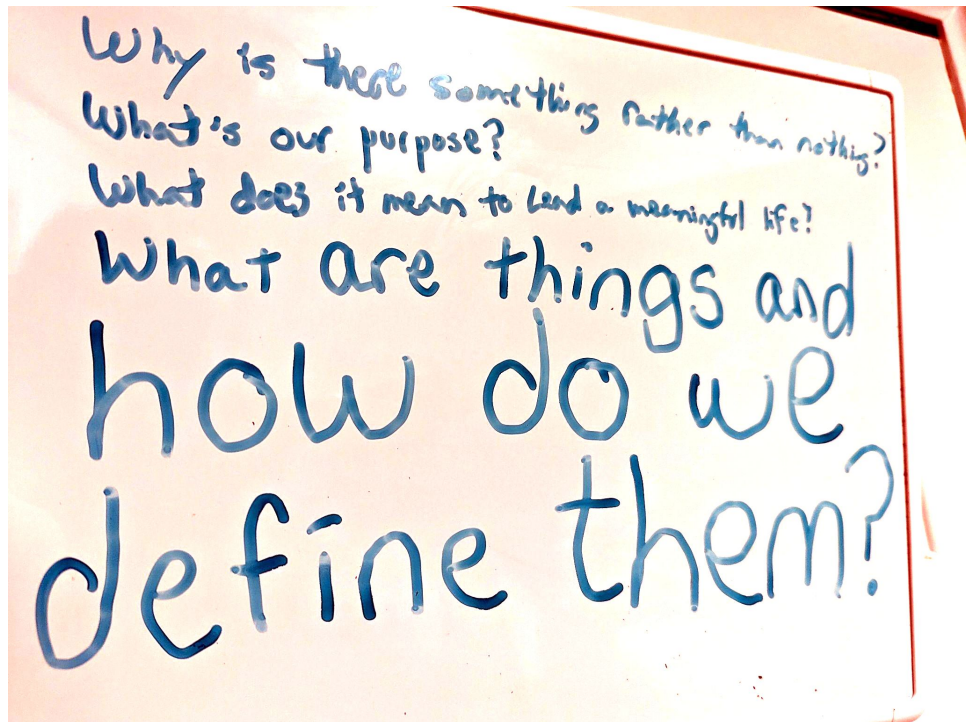 Why is there something rather than nothing?
What's our purpose?
What does it mean to Lead a meaningful life?
What are things and
how do we
define them?